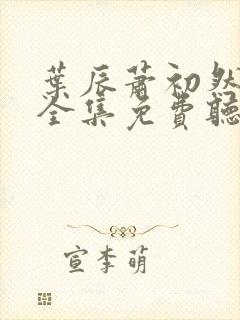 葉辰蕭初然
全集免費聽
宣李萌